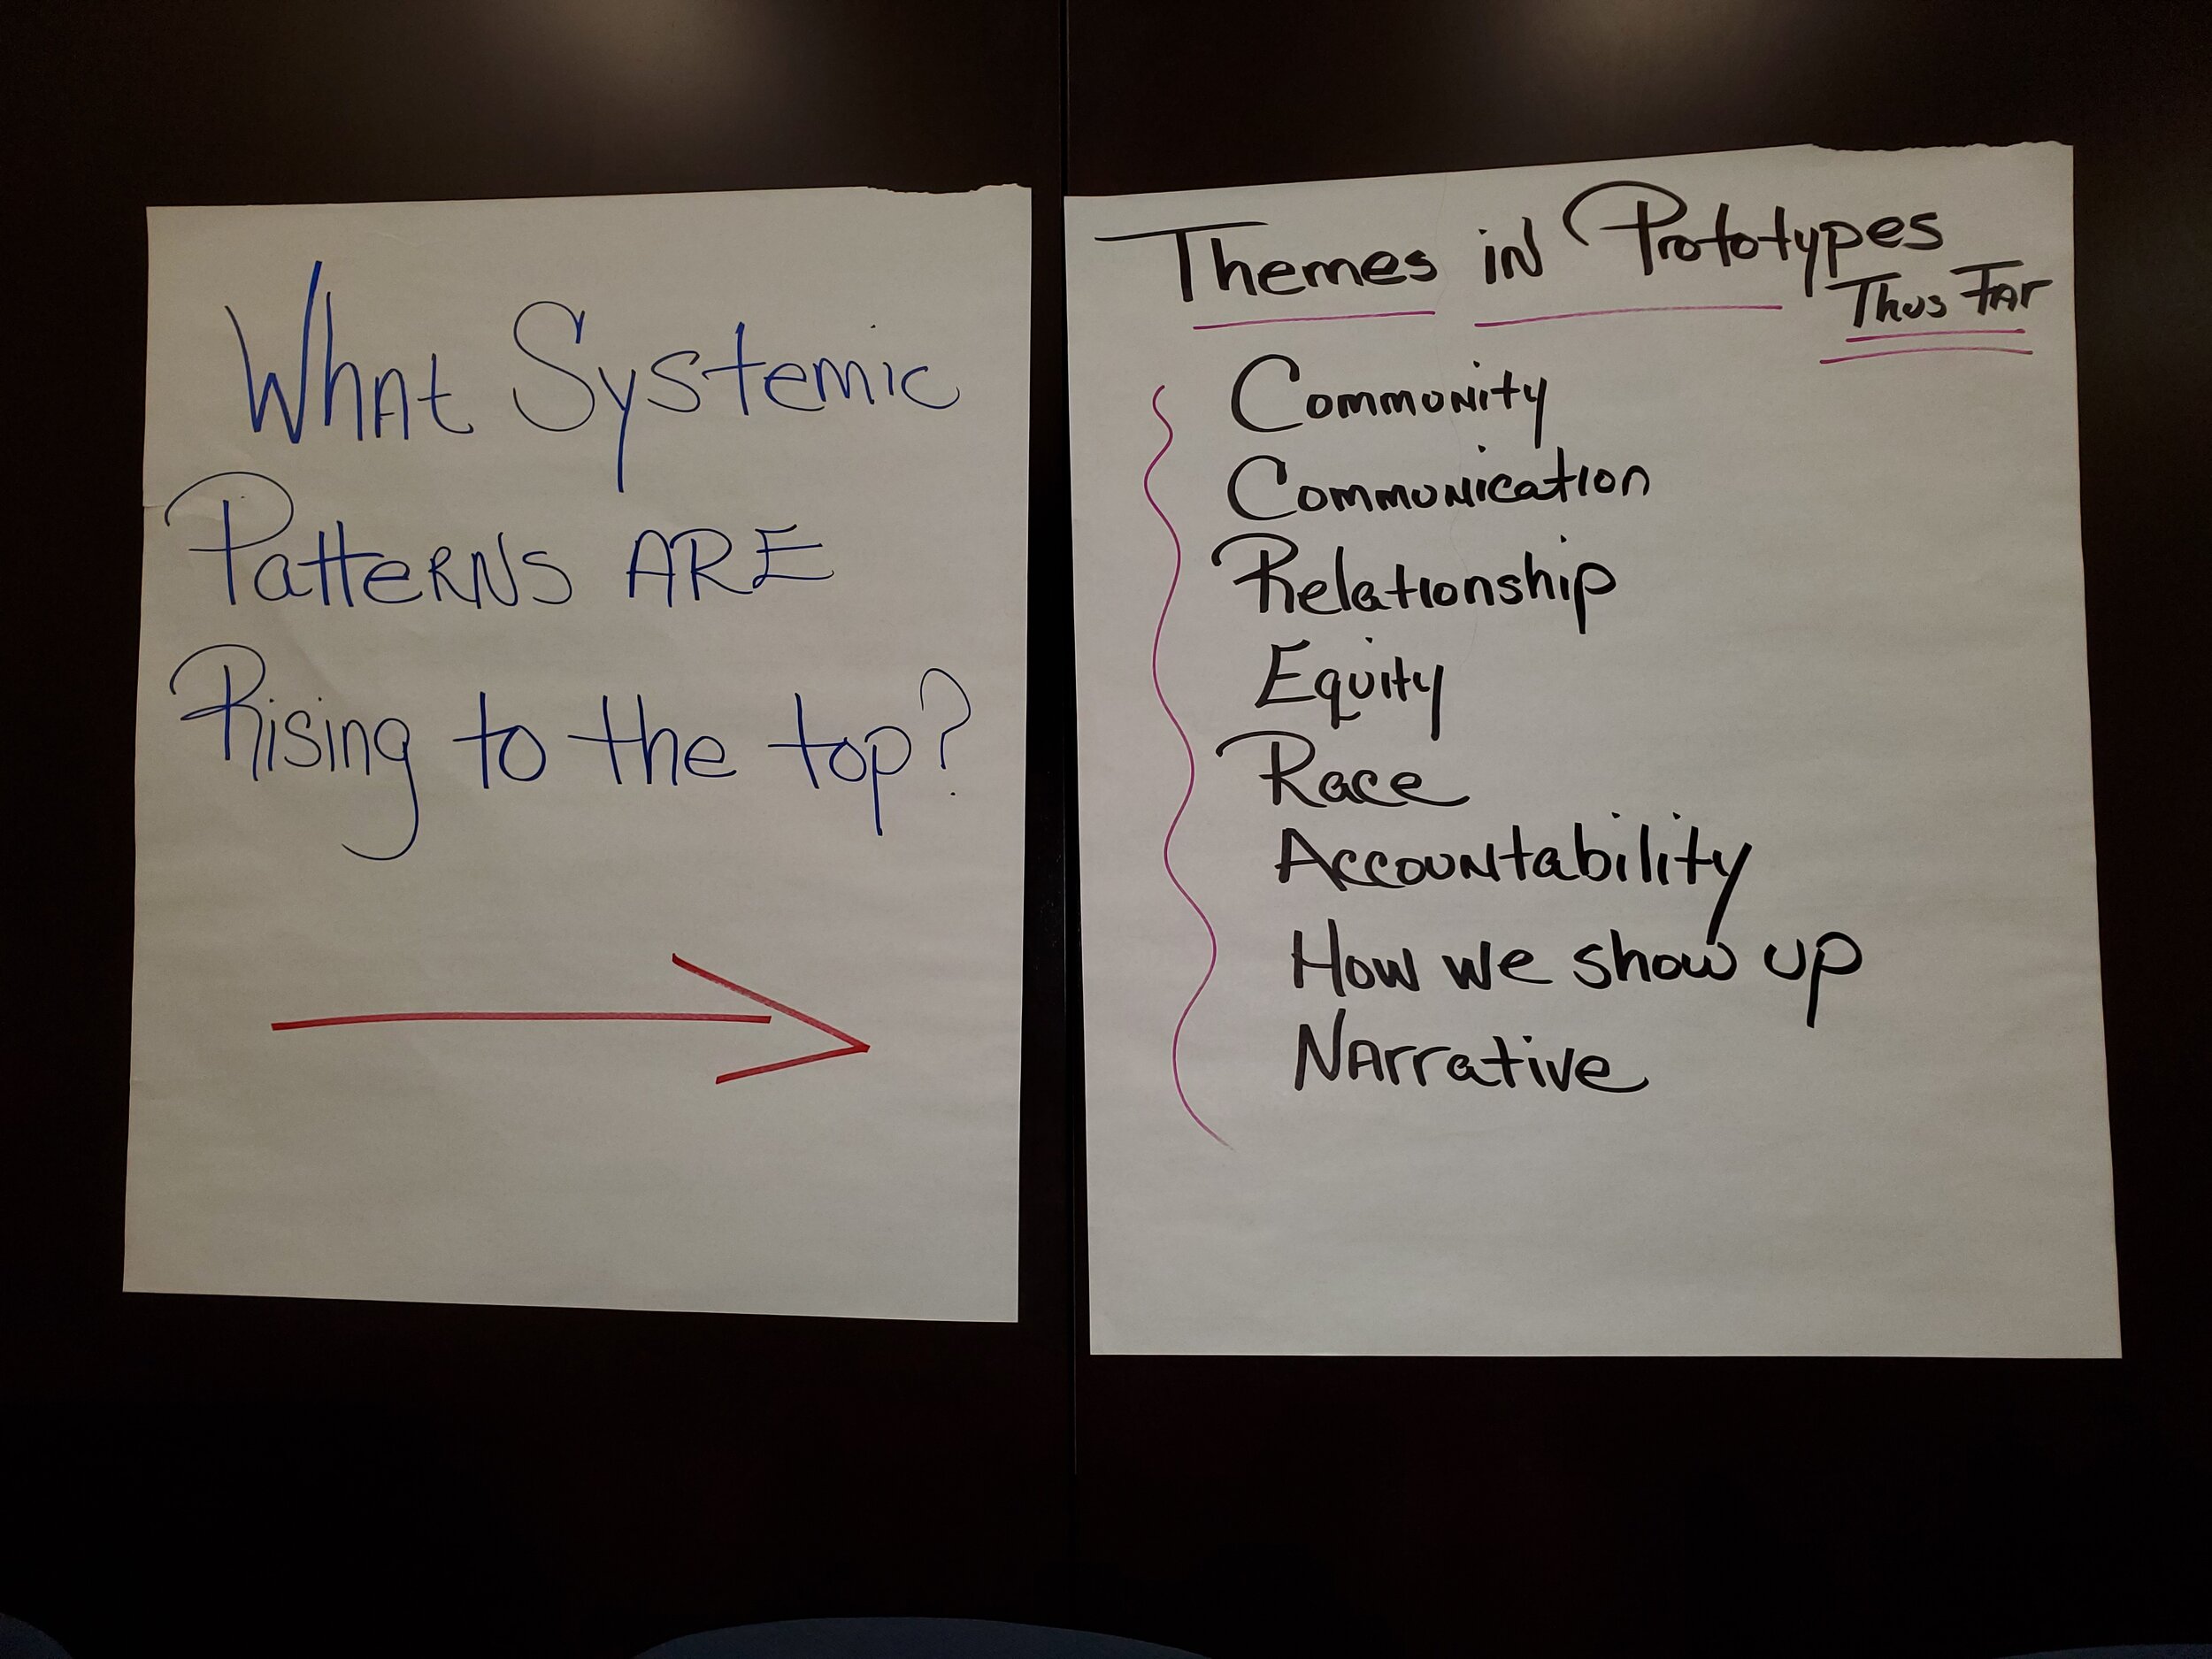 What Systemic
Patterns ARE
Rising to the top?
Themes in Prototypes
Thus Far
Community
Communication
Relationship
Equity
Race
Accountability
How we show up
Narrative